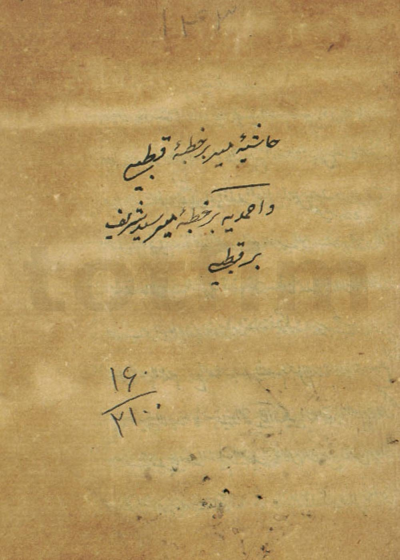 ۱۲۰۳
حاشیهٔ میر بر خطبهٔ قطبی
و احمدیه بر خطبهٔ میر سید شریف
بر قطبی
۱۶۰
۲۱۰۰